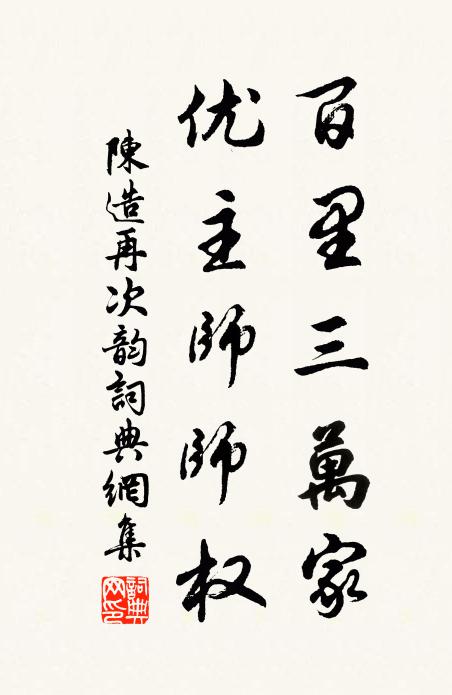 百里三萬家
优主師師权
陳造再次韵詞典網集
詞典網印